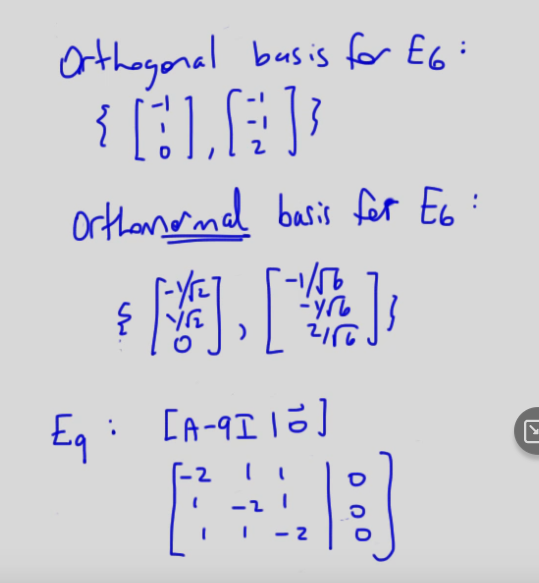 Orthogonal basis for E6:
{ [-1 1 0], [-1 -1 2] }
Orthonormal basis for E6:
{ [-1/√2 1/√2 0], [-1/√6 -1/√6 2/√6] }
E9: [A-9I | 0⃗]
[-2 1 1 | 0
1 -2 1 | 0
1 1 -2 | 0]